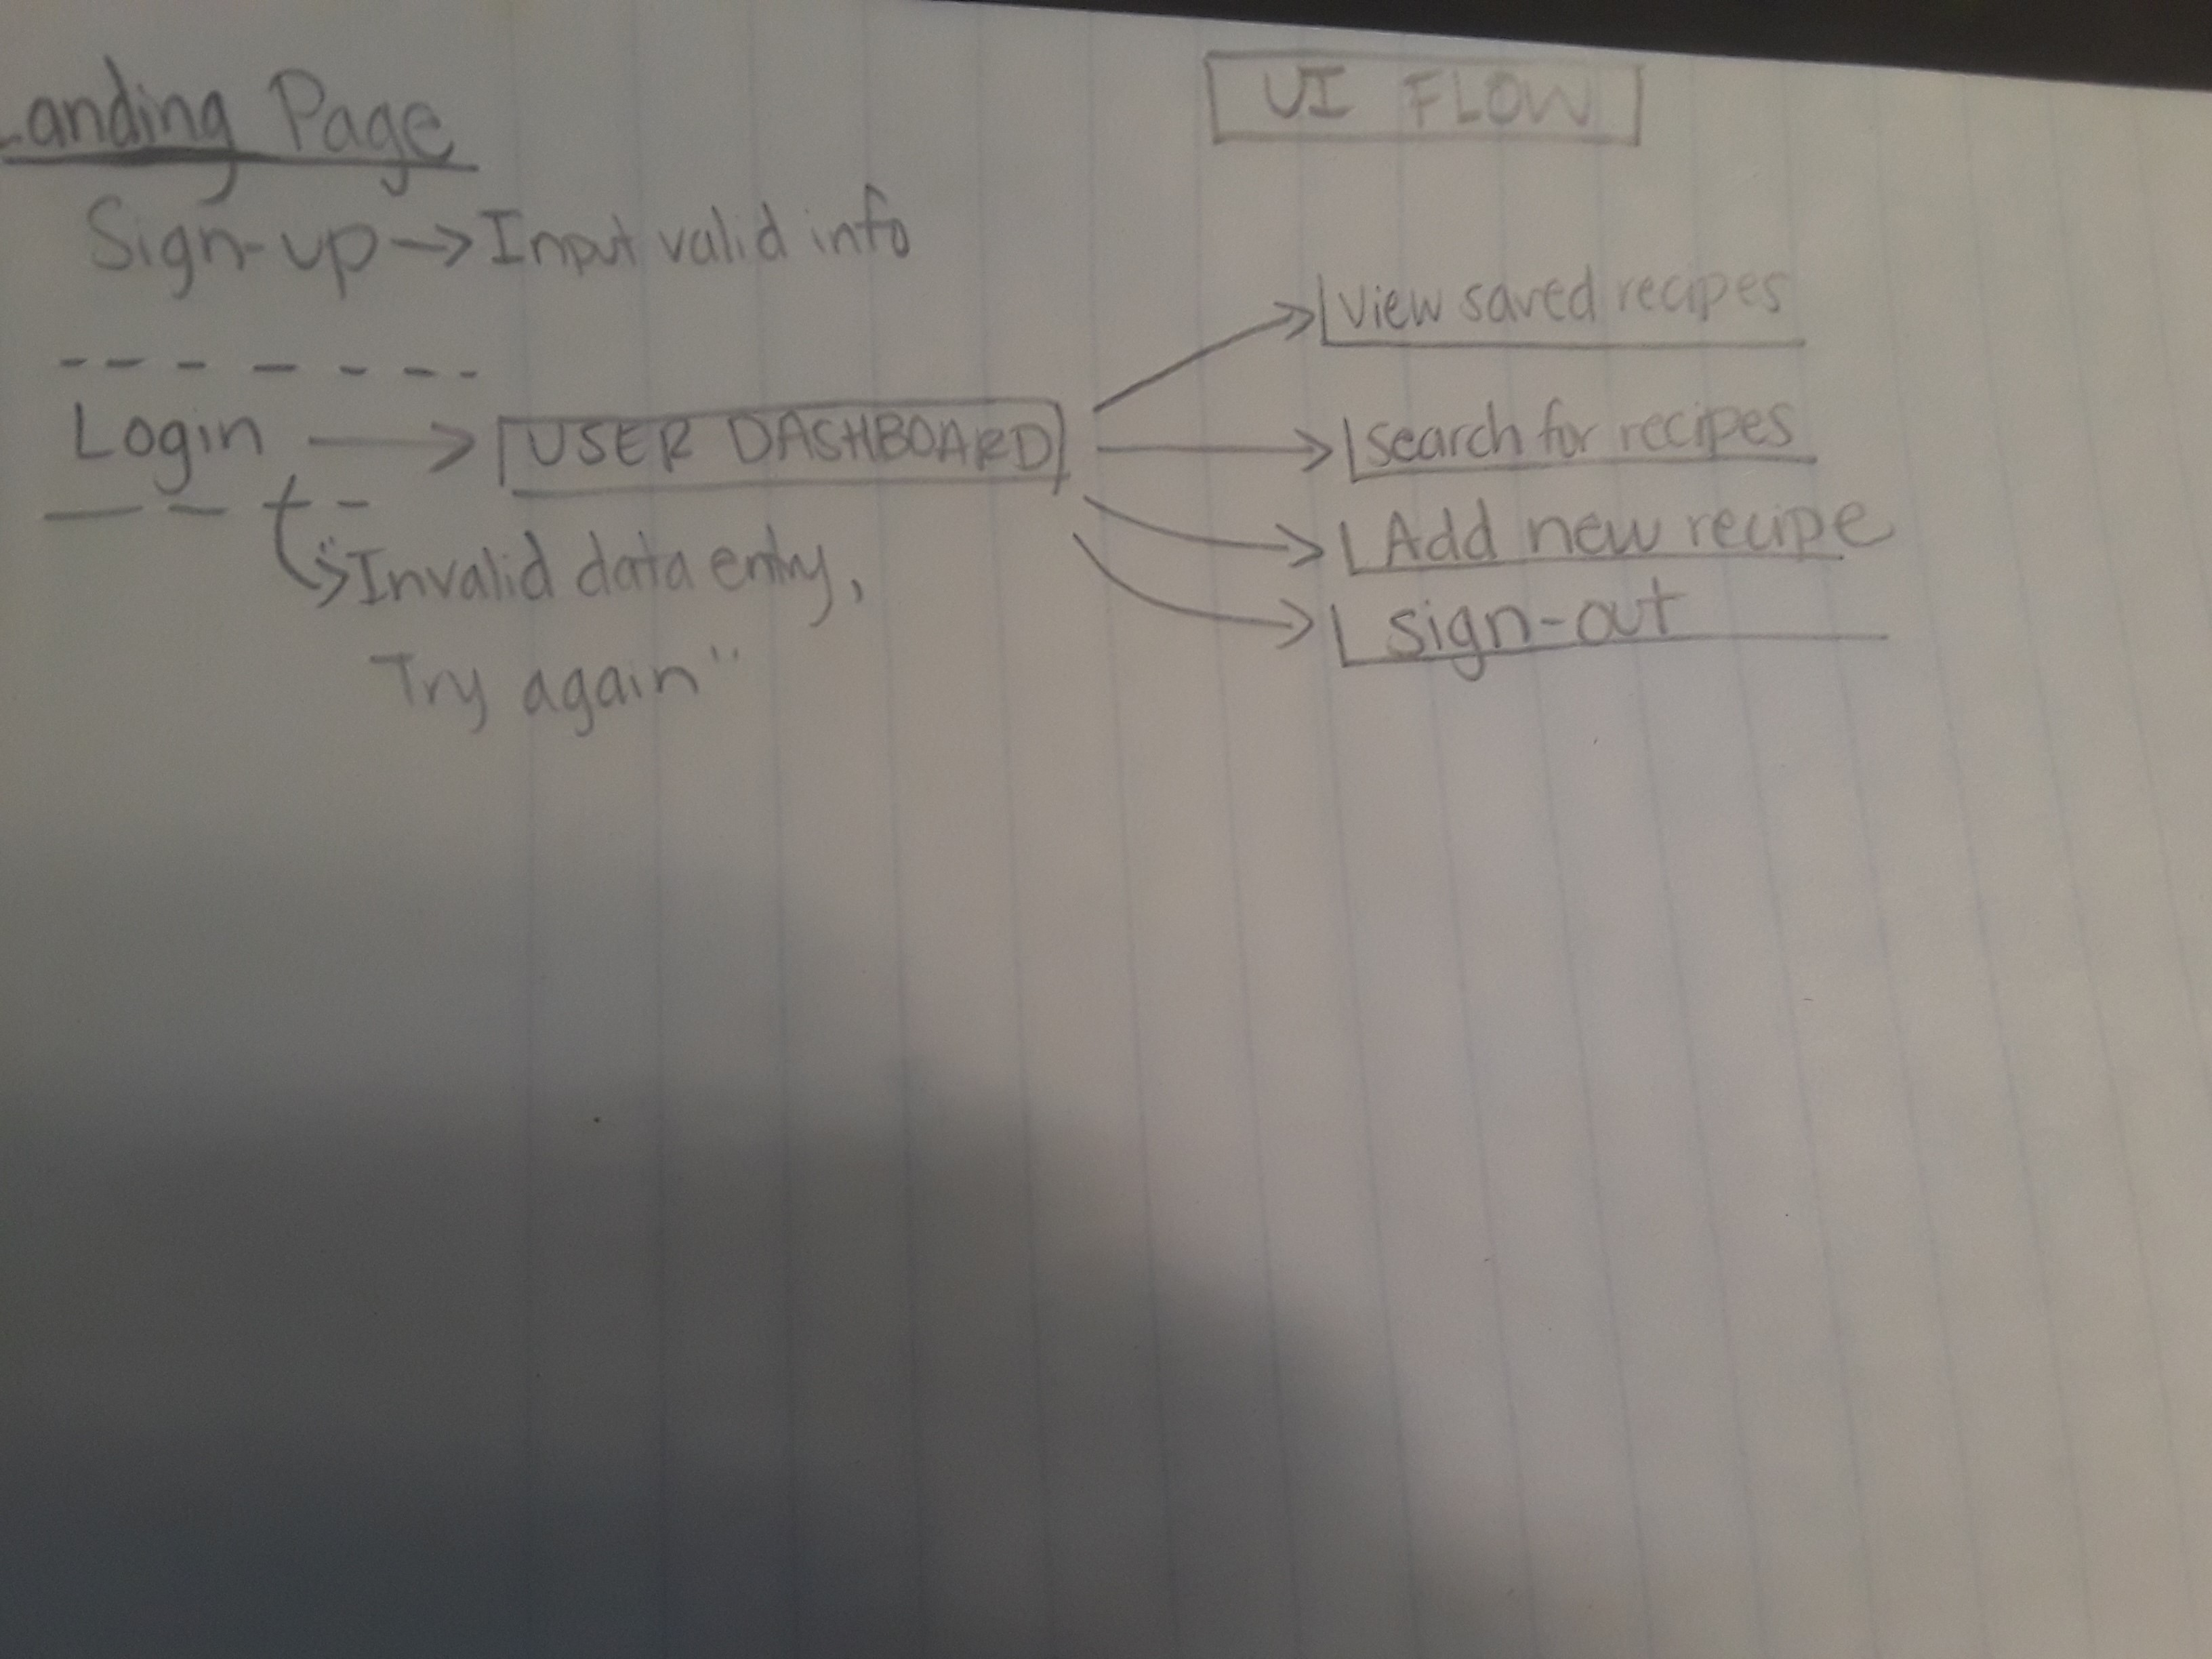 UI FLOW
Landing Page
Sign-up → Input valid info
Login → USER DASHBOARD
"Invalid data entry,
Try again"
View saved recipes
Search for recipes
Add new recipe
sign-out